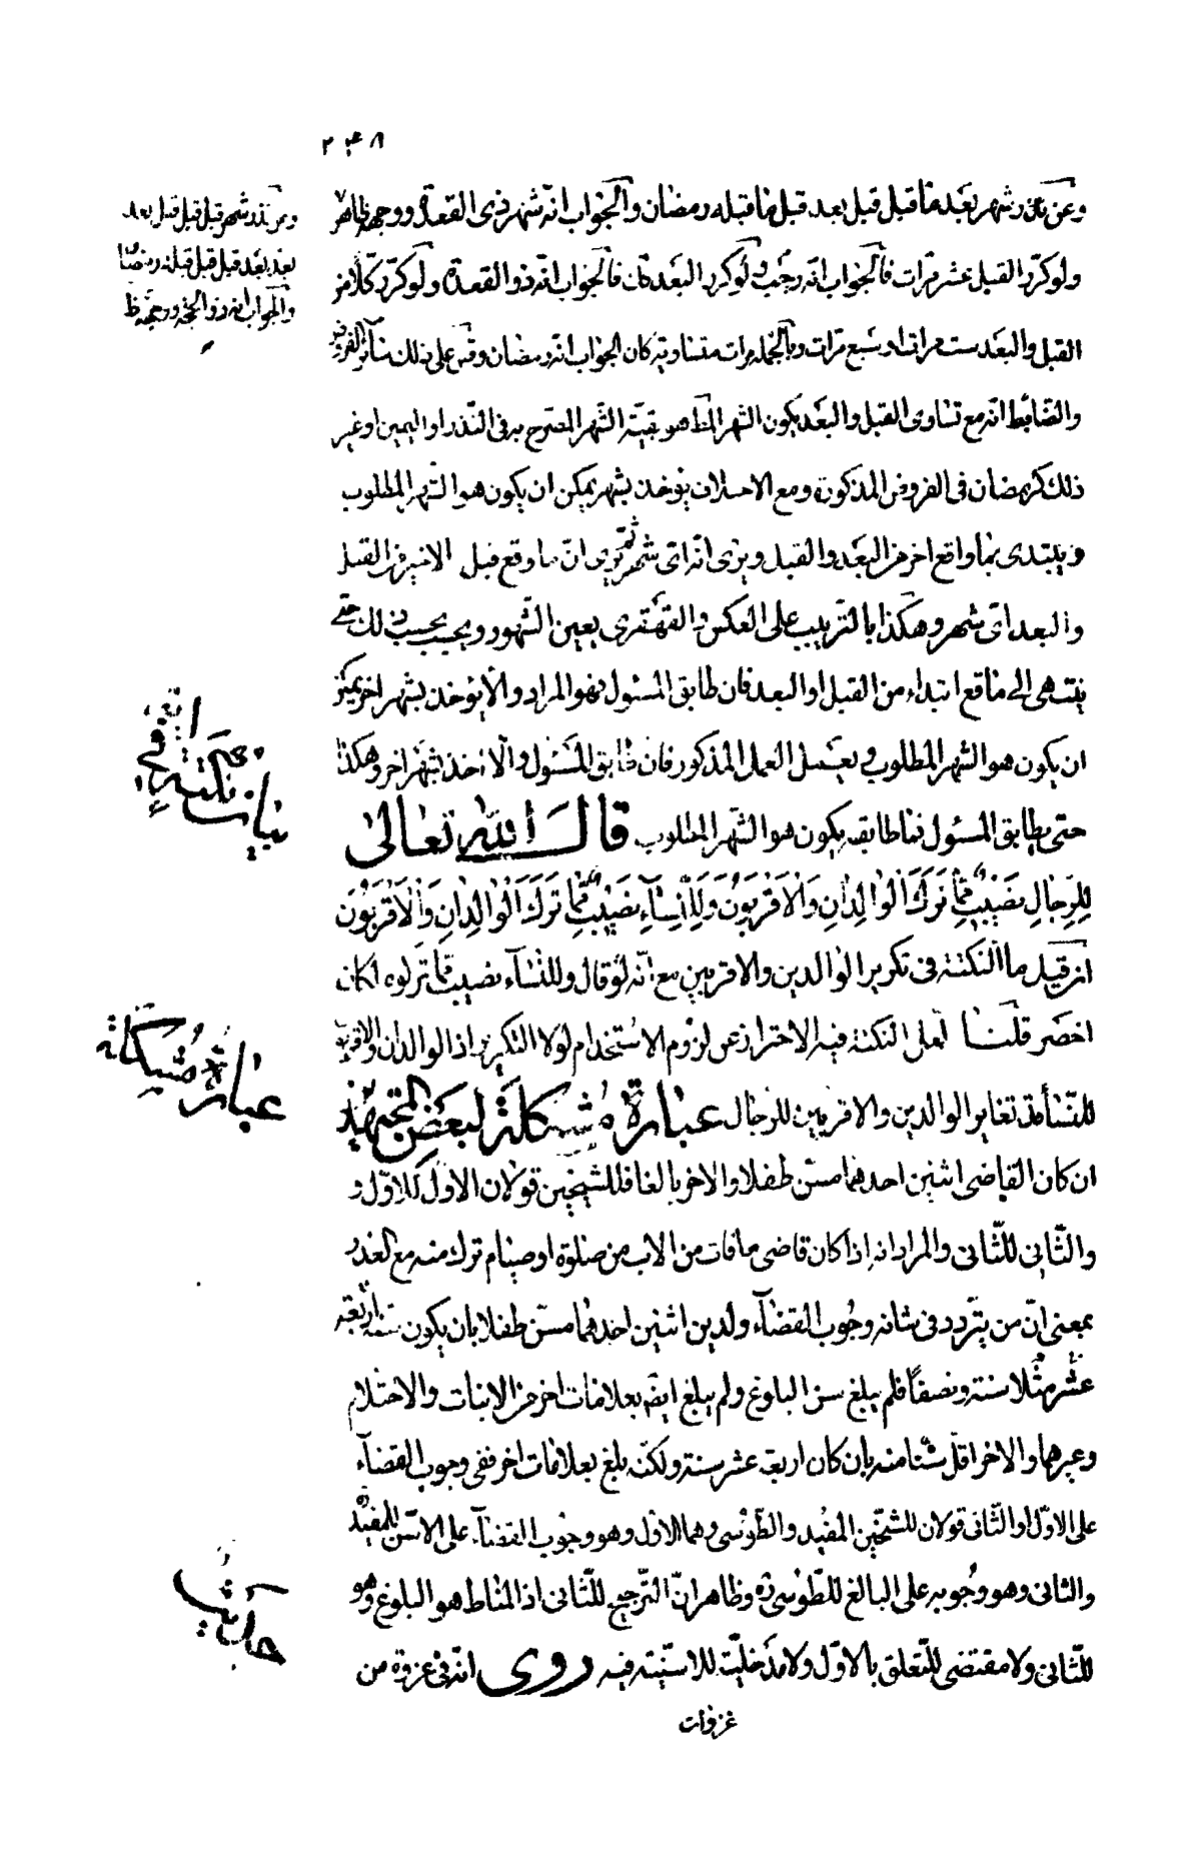 ٢٤٨
وعن نذر شهر بعد ما قبل قبل بعد قبل ما قبله رمضان والجواب انه شهر ذى القعدة ووجهه ظاهر
ولو كرر القبل عشر مرات فالجواب انه رجب ولو كرر البعد كان فالجواب انه ذو القعدة ولو كرر كلا من
القبل والبعد ست مرات او سبع مرات وبالجمله مرات متساوية كان الجواب انه رمضان وقس على ذلك سائر الفروض
والضابط انه مع تساوى القبل والبعد يكون الشهر المط هو بقية الشهر المصرح به فى النذر او اليمين او غير
ذلك كرمضان فى الفروض المذكورة ومع الاختلاف يؤخذ بشهر يمكن ان يكون هو الشهر المطلوب
ويبتدى بما واقع اخر من البعد والقبل ويرى انه اى شهر ثم يرى ان ما وقع قبل الاخير من القبل
والبعد اى شهر وهكذا بالترتيب على العكس والقهقرى يعين الشهور ويحسب بحسب ذلك حتى
ينتهى الى ما قع ابتداء من القبل او البعد فان طابق المسئول فهو المراد والا يؤخذ بشهر اخر يمكن
ان يكون هو الشهر المطلوب ويعمل العمل المذكور فان طابق المسئول والا اخذ بشهر اخر وهكذا
حتى يطابق المسئول فما طابقه يكون هو الشهر المطلوب قال الله تعالى
للرجال نصيب مما ترك الوالدان والاقربون وللنساء نصيب مما ترك الوالدان والاقربون
ان قيل ما النكتة فى تكرير الوالدين والاقربين مع انه لو قال وللنساء نصيب مما تركوه لكان
اخصر قلنا لعل النكتة فيه الاحتراز عن لزوم الاستخدام لولا التكرير اذ الوالدان والاقربون
للنساء قد تغاير الوالدين والاقربين للرجال عبارة مشكلة لبعض المجتهدين
ان كان القاضى اثنين احدهما مسن طفلا والاخر بالغا فللشيخين قولان الاول للاول و
والثانى للثانى والمراد انه اذا كان قاضى ما فات من الاب من صلوة او صيام ترك منه مع العذر
بمعنى ان من يتردد فى شانه وجوب القضاء ولدين اثنين احدهما مسن طفلا بان يكون سنه اربعة
عشر مثلا سنة ونصفا فلم يبلغ سن البلوغ ولم يبلغ ايضا بعلامات اخر من الانبات والاحتلام
وغيرهما والاخر اقل سنا منه بان كان اربعة عشر سنة ولكنه بلغ بعلامات اخر ففى وجوب القضاء
على الاول او الثانى قولان للشيخين المفيد والطوسى وهما الاول وهو وجوب القضاء على الاسن للمفيد
والثانى وهو وجوبه على البالغ للطوسى ره وظاهر ان الترجيح للثانى اذ المناط هو البلوغ وهو
للثانى ولا مقتضى للتعلق بالاول ولا مدخلية للاسنية فيه روى انه فى غزوة من
غزوات
وعن نذر شهر قبل قبل قبل بعد
بعد بعد قبل قبل قبله رمضان
والجواب انه ذو الحجة ووجهه ظ
بيان نكتة فى
عبارة مشكلة
حديث